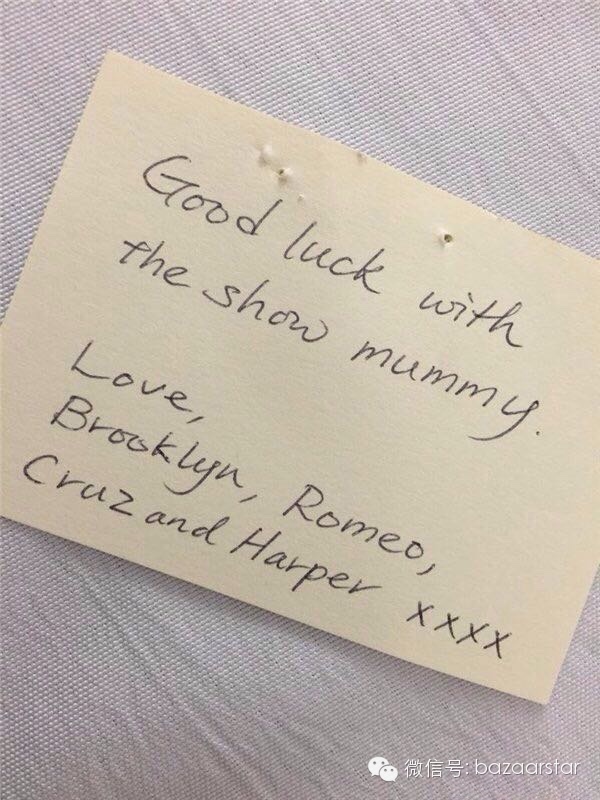 Good luck with
the show mummy.
Love,
Brooklyn, Romeo,
Cruz and Harper xxxx
微信号: bazaarstar